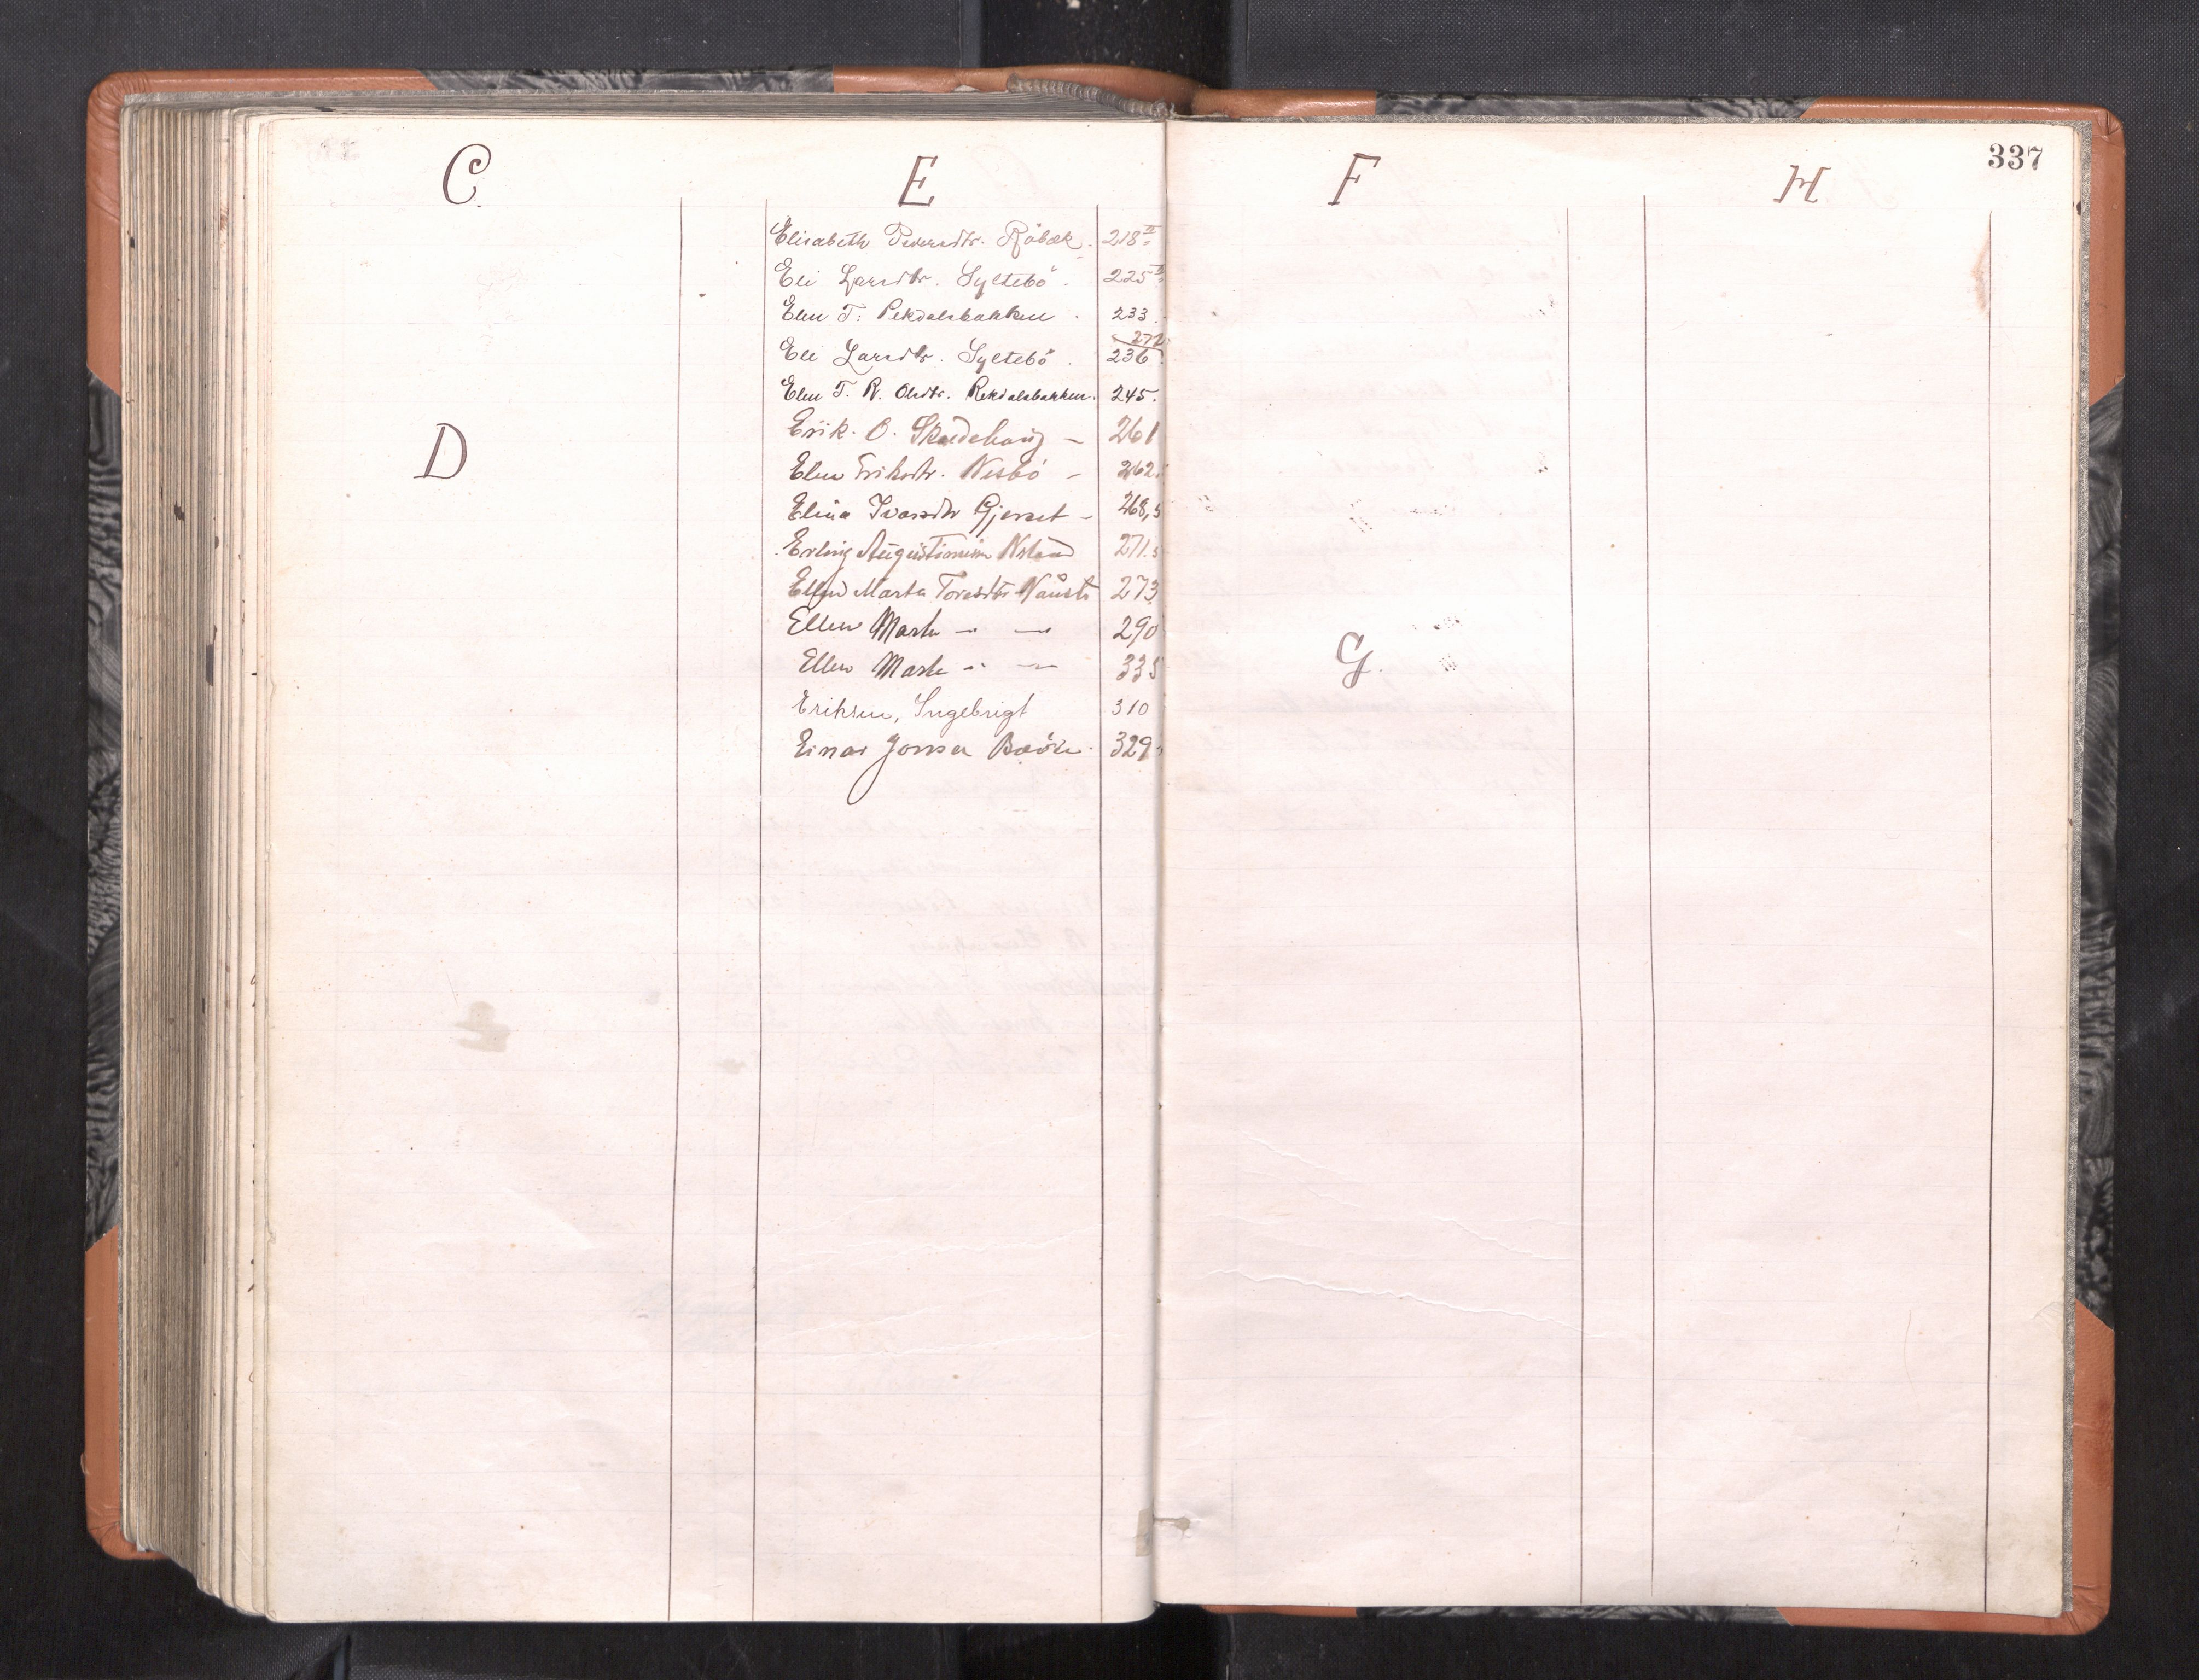 C.
D
E
Elisabeth Pedersdtr. Råbæk. 218 II
Eli Larsdtr. Syltebö. 225 II
Elen T. Rekdalsbakken. 233.
272
Eli Larsdtr. Syltebö. 236.
Elen T. R. Olsdtr. Rekdalsbakken. 245.
Erik. O. Skudehaug – 261
Elen Eriksdtr. Nesbö – 262.
Elina Ivarsdtr Gjerset – 268,5
Erling Augustinsen 271.5
Ellen Marta Toresdtr 273
Ellen Marta –" — 290
Ellen Marta –" — 335
Eriksen, Ingebrigt 310
Einar Jonsen 329
F
G.
H
337